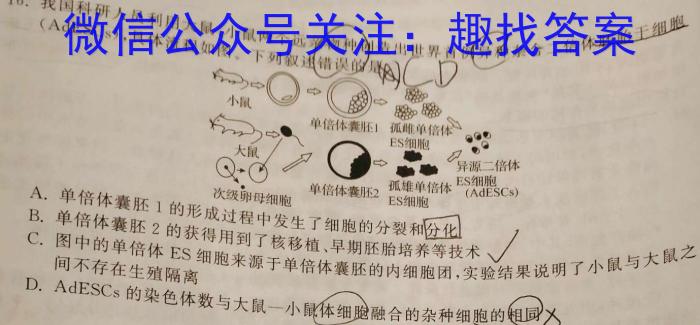 16. 我国科研人员利用小鼠
微信公众号关注：趣找答案
下列叙述错误的是 A C D
小鼠
单倍体囊胚1 孤雌单倍体
ES细胞
大鼠
异源二倍体
次级卵母细胞 单倍体囊胚2 孤雄单倍体 ES细胞
ES细胞 (AdESCs)
A. 单倍体囊胚 1 的形成过程中发生了细胞的分裂和分化
B. 单倍体囊胚 2 的获得用到了核移植、早期胚胎培养等技术
C. 图中的单倍体 ES 细胞来源于单倍体囊胚的内细胞团,实验结果说明了小鼠与大鼠之
间不存在生殖隔离
D. AdESCs 的染色体数与大鼠—小鼠体细胞融合的杂种细胞的相同